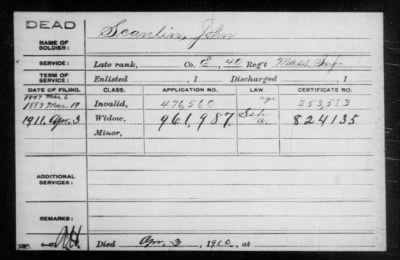 DEAD
NAME OF SOLDIER: Scanlin, John
SERVICE: Late rank, Co. E, 40 Reg't Mass. Inf.
TERM OF SERVICE: Enlisted , 1 Discharged , 1
DATE OF FILING. CLASS. APPLICATION NO. LAW. CERTIFICATE NO.
1883 Mar. 19 Invalid, 476,560 253,553
1911. Apr. 3 Widow, 961,987. 824135
Minor,
ADDITIONAL SERVICES:
REMARKS:
Died Apr. 3, 1910, at